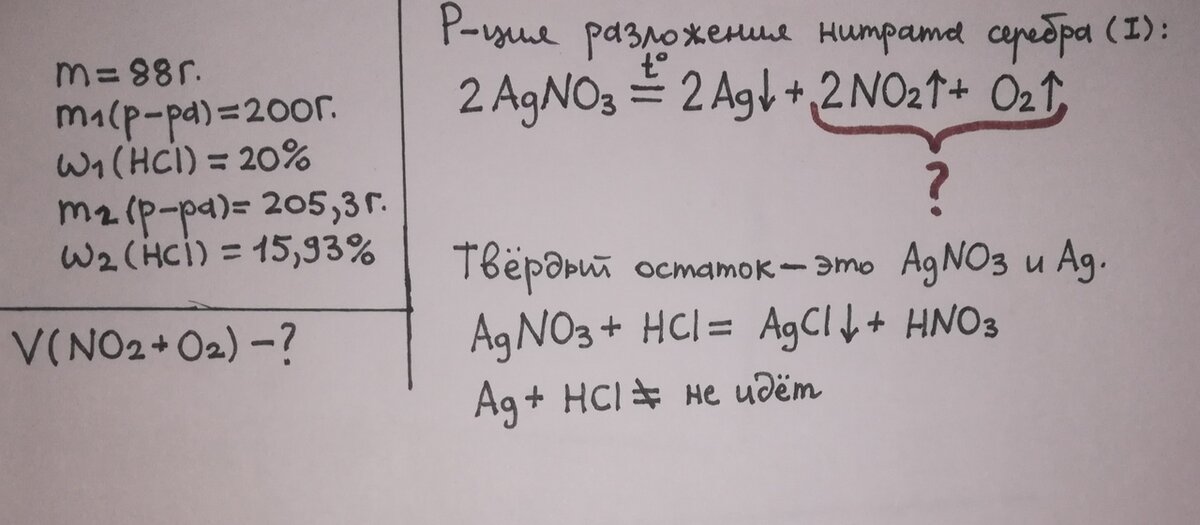 m = 88г.
m1(р-ра)=200г.
ω1(HCl) = 20%
m2(р-ра)= 205,3г.
ω2(HCl) = 15,93%
V(NO2+O2) –?
Р-ция разложения нитрата серебра (I):
t°
2AgNO3 = 2Ag↓ + 2NO2↑ + O2↑
?
Твёрдый остаток – это AgNO3 и Ag.
AgNO3 + HCl = AgCl↓ + HNO3
Ag + HCl ≠ не идёт